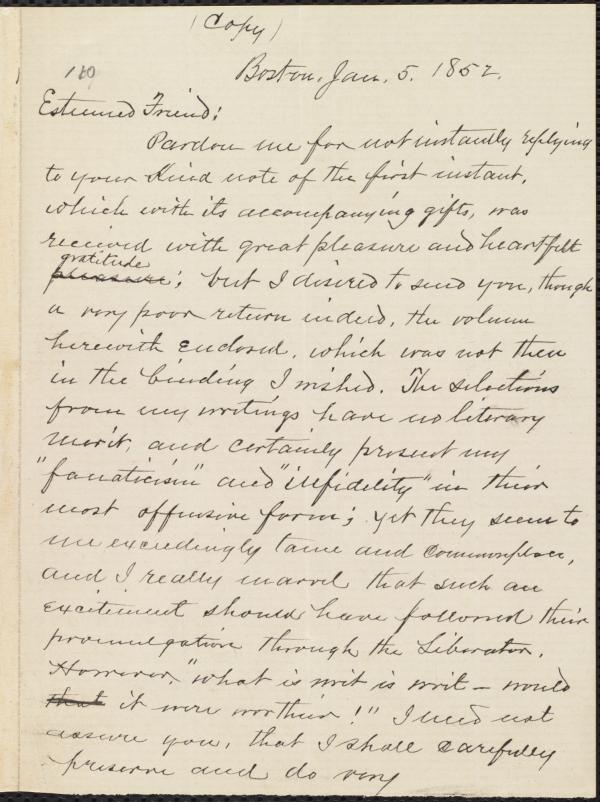 (Copy)
Boston, Jan. 5. 1852.
110
Esteemed Friend:
Pardon me for not instantly replying
to your kind note of the first instant,
which with its accompanying gifts, was
received with great pleasure and heartfelt
gratitude
pleasure; but I desired to send you, though
a very poor return indeed, the volume
herewith enclosed, which was not then
in the binding I wished. The selections
from my writings have no literary
merit, and certainly present my
"fanaticism" and "infidelity" in their
most offensive form; yet they seem to
me exceedingly tame and commonplace,
and I really marvel that such an
excitement should have followed their
promulgation through the Liberator.
However, "what is writ is writ – would
that it were worthier!" I need not
assure you, that I shall carefully
preserve and do very